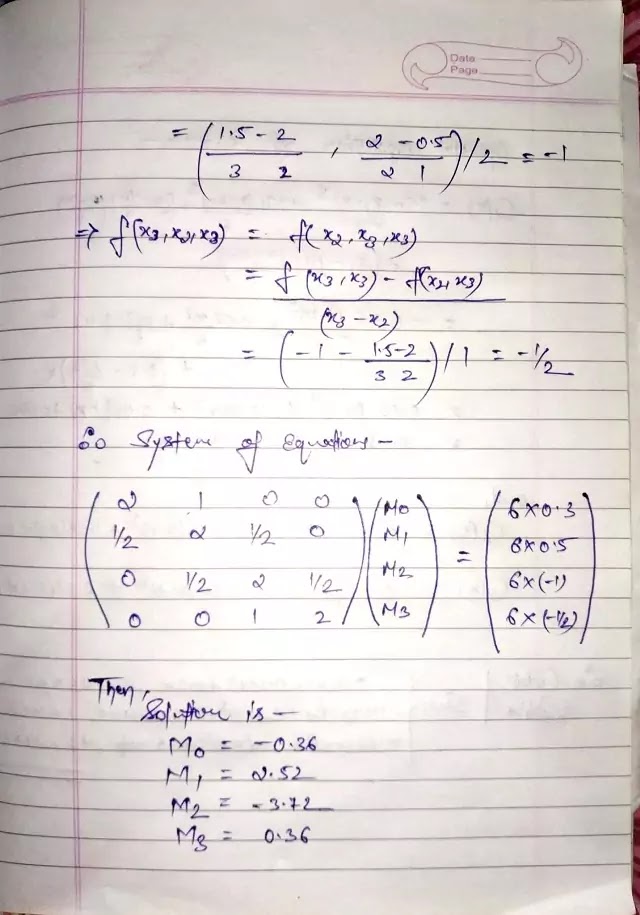 Date
Page
= (1.5 - 2 / 3 2 , 2 - 0.5 / 2 1)/2 = -1
⇒ f(x3, x2, x3) = f(x2, x3, x3)
= f(x3, x3) - f(x2, x3)
(x3 - x2)
= (-1 - 1.5-2 / 3 2)/1 = -1/2
So System of Equations -
2 1 0 0 M0 6×0.3
1/2 2 1/2 0 M1 = 6×0.5
0 1/2 2 1/2 M2 6×(-1)
0 0 1 2 M3 6×(-1/2)
Then,
Solution is -
M0 = -0.36
M1 = 2.52
M2 = -3.72
M3 = 0.36